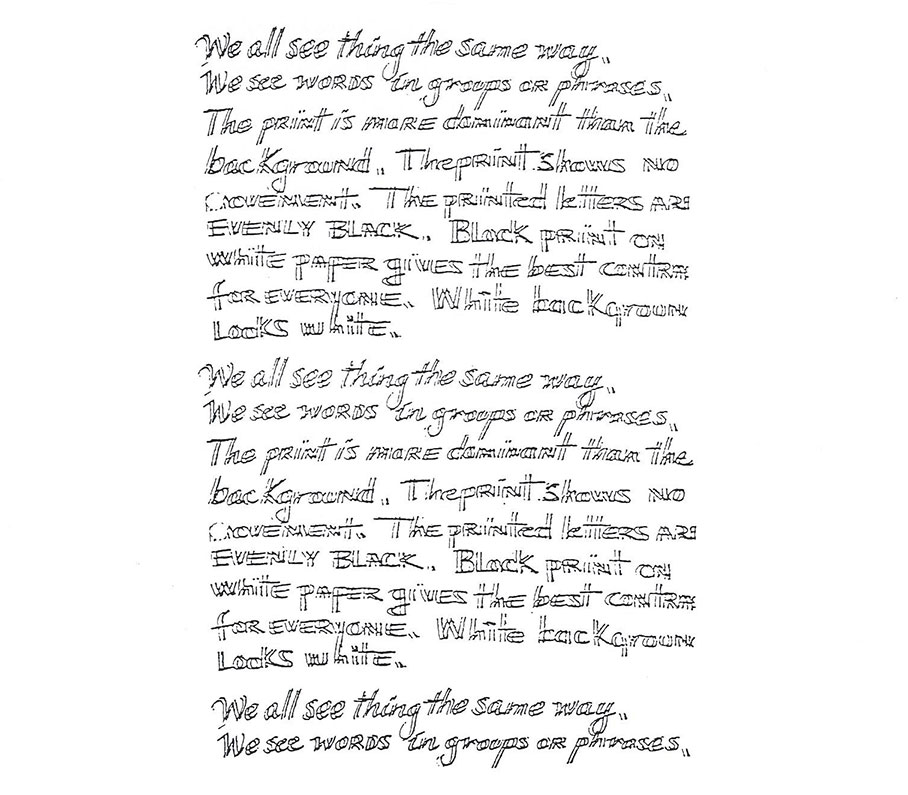 We all see thing the same way.
We see words in groups or phrases.
The print is more dominant than the
background. The print shows no
movement. The printed letters are
evenly black. Black print on
white paper gives the best
for everyone. White
Looks white.
We all see thing the same way.
We see words in groups or phrases.
The print is more dominant than the
background. The print shows no
movement. The printed letters are
evenly black. Black print on
white paper gives the best
for everyone. White
Looks white.
We all see thing the same way.
We see words in groups or phrases.